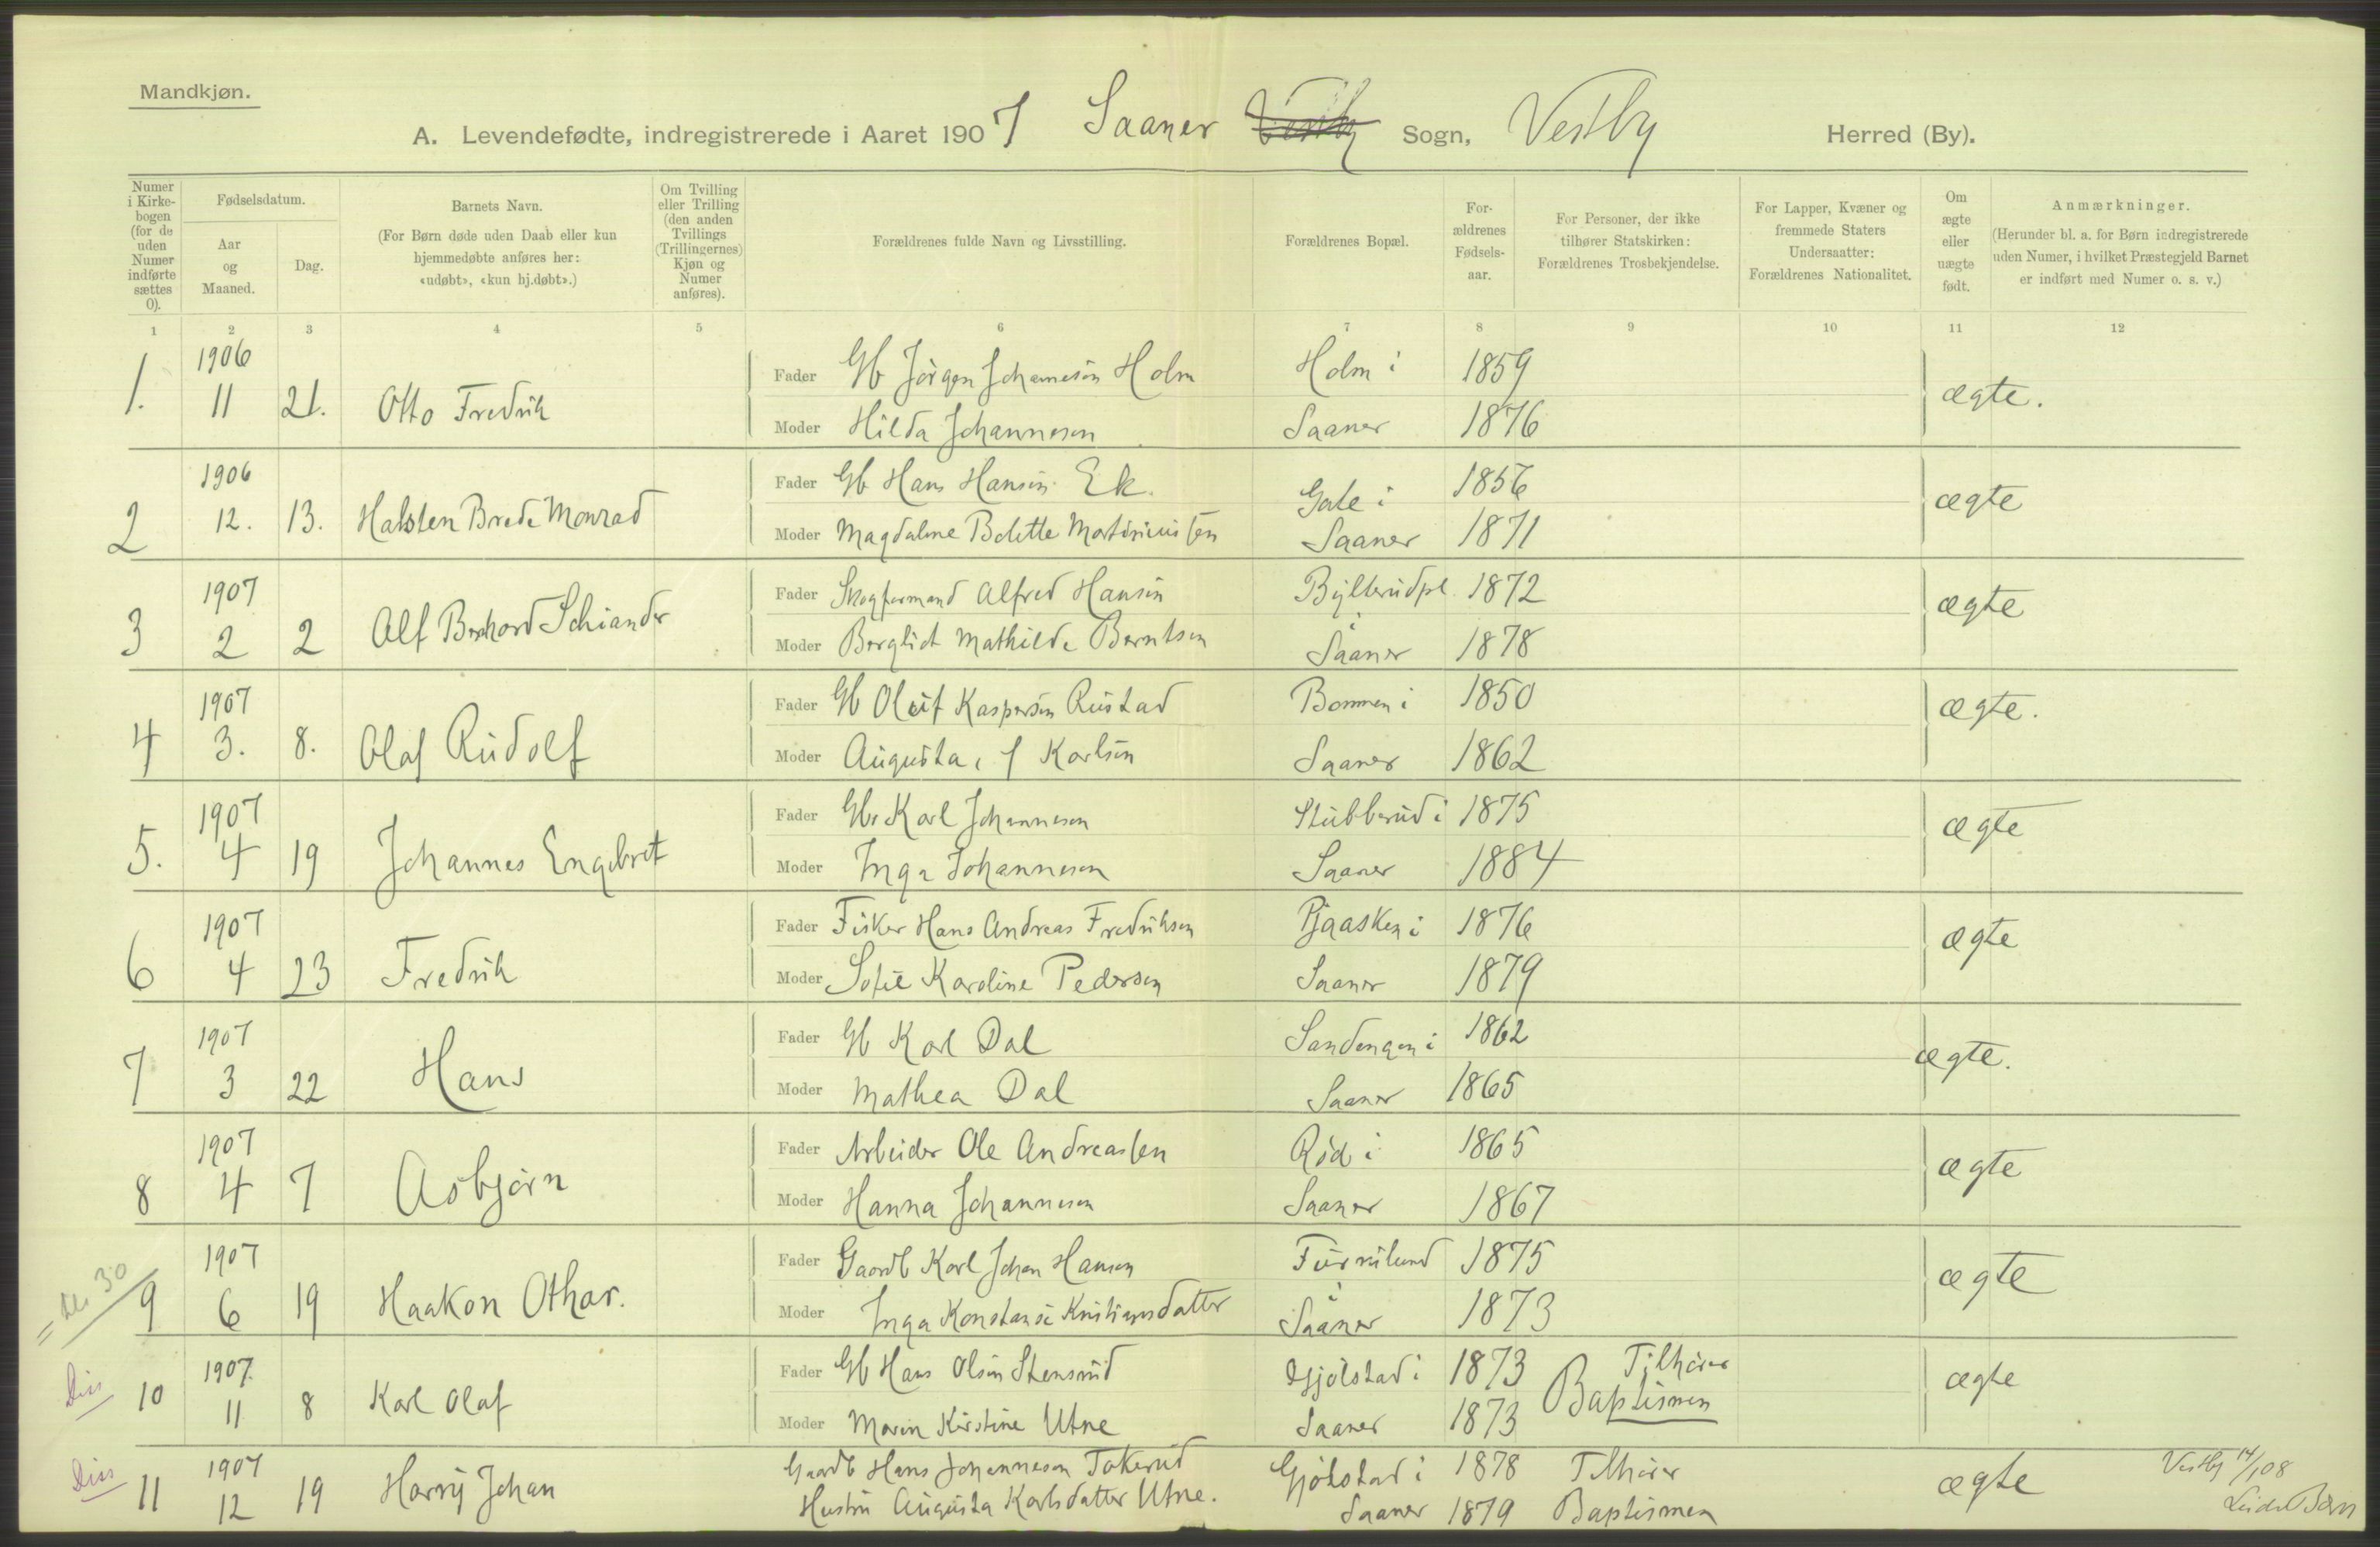 Mandkjøn.
A. Levendefødte, indregistrerede i Aaret 1907 Saaner Vestby Sogn, Vestby Herred (By).
Numer i Kirke-bogen (for de uden Numer indførte sættes 0).
Fødselsdatum.
Aar og Maaned.
Dag.
Barnets Navn.
(For Børn døde uden Daab eller kun hjemmedøbte anføres her: «udøbt», «kun hj.døbt».)
Om Tvilling eller Trilling (den anden Tvillings (Trillingernes) Kjøn og Numer anføres).
Forældrenes fulde Navn og Livsstilling.
Forældrenes Bopæl.
For-ældrenes Fødsels-aar.
For Personer, der ikke tilhører Statskirken: Forældrenes Trosbekjendelse.
For Lapper, Kvæner og fremmede Staters Undersaatter: Forældrenes Nationalitet.
Om ægte eller uægte født.
Anmærkninger.
(Herunder bl. a. for Børn indregistrerede uden Numer, i hvilket Præstegjeld Barnet er indført med Numer o. s. v.)
1 2 3 4 5 6 7 8 9 10 11 12
1. 1906 11 21. Otto Fredrik
Fader Gb Jörgen Johannesen Holm Holm i 1859
Moder Hilda Johannesen Saaner 1876
ægte.
2 1906 12. 13. Halsten Brede Monrad
Fader Gb Hans Hansen Ek. i 1856
Moder Magdalene Bolette Martiniussen Saaner 1871
ægte
3 1907 2 2 Alf Bernhard Schiander
Fader Skogformand Alfred Hansen 1872
Moder Borglict Mathilde Berntsen i Saaner 1878
ægte
4 1907 3. 8. Olaf Rudolf
Fader Gb Oluf Kaspersen Rustad Bommen i 1850
Moder Augusta, f Karlsen Saaner 1862
ægte.
5. 1907 4 19 Johannes Engebret
Fader Gbr Karl Johannesen Stubberud i 1875
Moder Inga Johannesen Saaner 1884
ægte
6 1907 4 23 Fredrik
Fader Fisker Hans Andreas Fredriksen Pjaasken i 1876
Moder Sofie Karoline Pedersen Saaner 1879
ægte
7 1907 3 22 Hans
Fader Gb Karl Dal Sandengen i 1862
Moder Mathea Dal Saaner 1865
ægte.
8 1907 4 7 Asbjörn
Fader Arbeider Ole Andreassen Röd i 1865
Moder Hanna Johannesen Saaner 1867
ægte
30 9 1907 6 19 Haakon Othar.
Fader Gaardb Karl Johan Hansen Furulund 1875
Moder Inga Konstanse Kristiansdatter i Saaner 1873
ægte
Diss 10 1907. 11 8 Karl Olaf
Fader Gb Hans Olsen Stensrud Gjölstad i 1873 Tilhörer
Moder Maren Kirstine Utne Saaner 1873 Baptismen
ægte
Diss 11 1907 12 19 Harry Johan
Gaardb Hans Johannesen Tokerud Gjölstad i 1878 Tilhörer
Hustru Augusta Karlsdatter Utne. Saaner 1879 Baptismen
ægte
Vestby 14/1 08